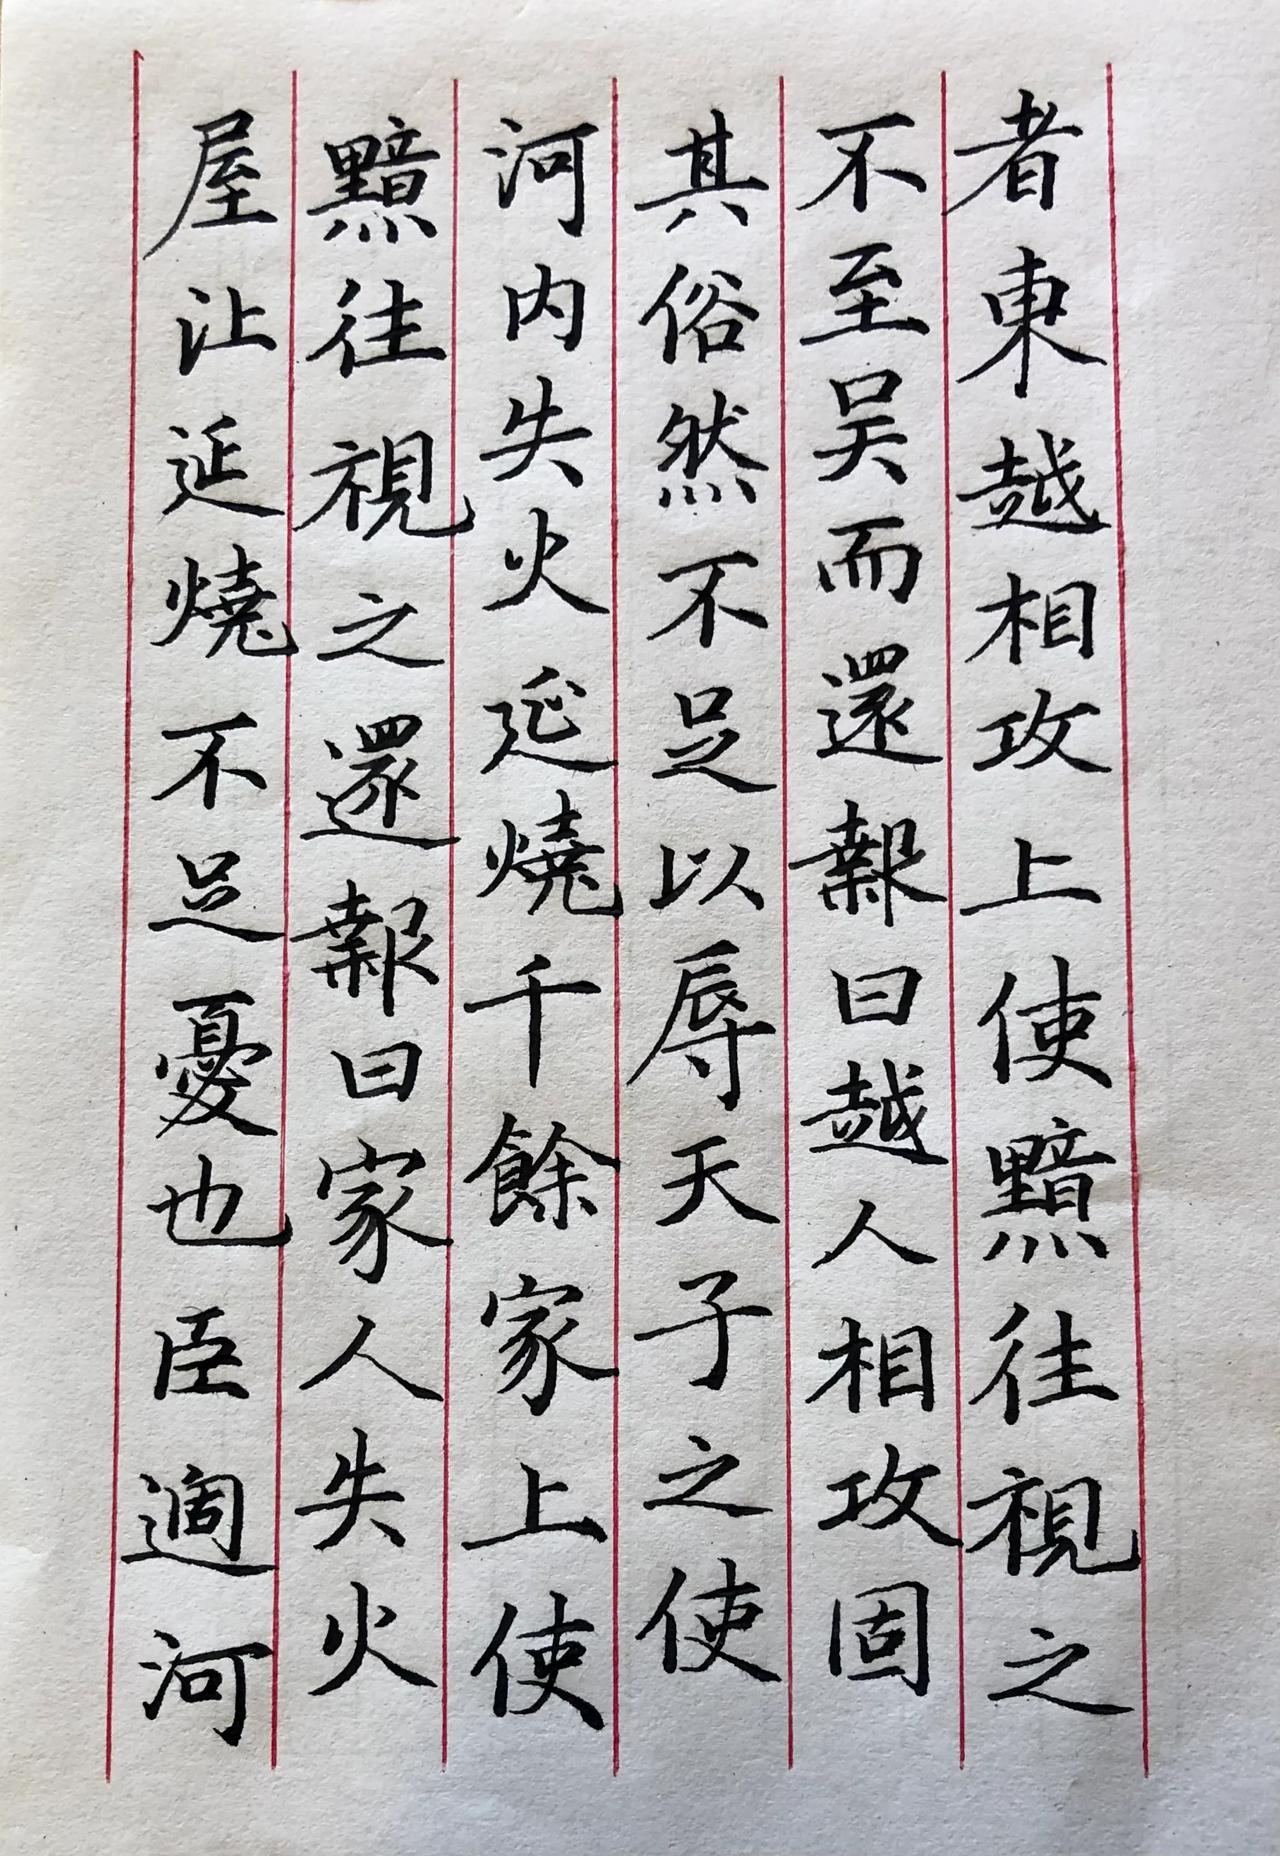 者東越相攻上使黯往視之
不至吴而還報曰越人相攻固
其俗然不足以辱天子之使
河内失火延燒千餘家上使
黯往視之還報曰家人失火
屋沚延燒不足憂也臣適河